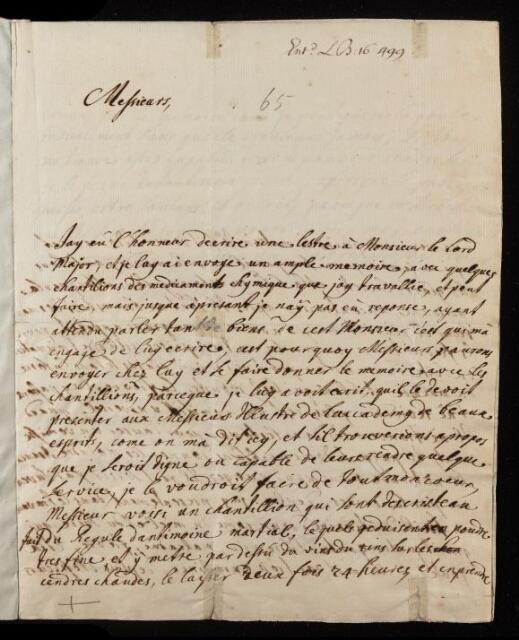 Entd. LB. 16 499
Messieurs,
65
Jay eü l'honneur decrire une lestre à Monsieur le Lord
Major, et je luy ai envoye un ample memoire, avec quelques
chantilions des medicaments chymique que jay travallie, et peut
faire, mais jusque apresant je naÿ pas eü reponse, ayant
attendu parler tant de biens de cest Monsieur c'est qui ma
engage de luy ecrire, cest pourquoy Messieurs
envoyer chez luy et se faire donner le memoire avec les
chantillions, parceque je luy avoit ecrit, quil le devoit
presenter aux Messieurs Illustre de laccademy de beaux
esprits, come on ma dit icy, et sil trouverions apropos
que je serois digne ou capable de leurs rendre quelque
service, je le voudroit faire de tout mon coeur,
Messieur voisi un chantillion qui sont
fait du Regule dantimoine martial, le
tres fine et y metre par dessu du vin du rins sur les
cendres chaudes, le layser deux fois 24 heures, et en prendre